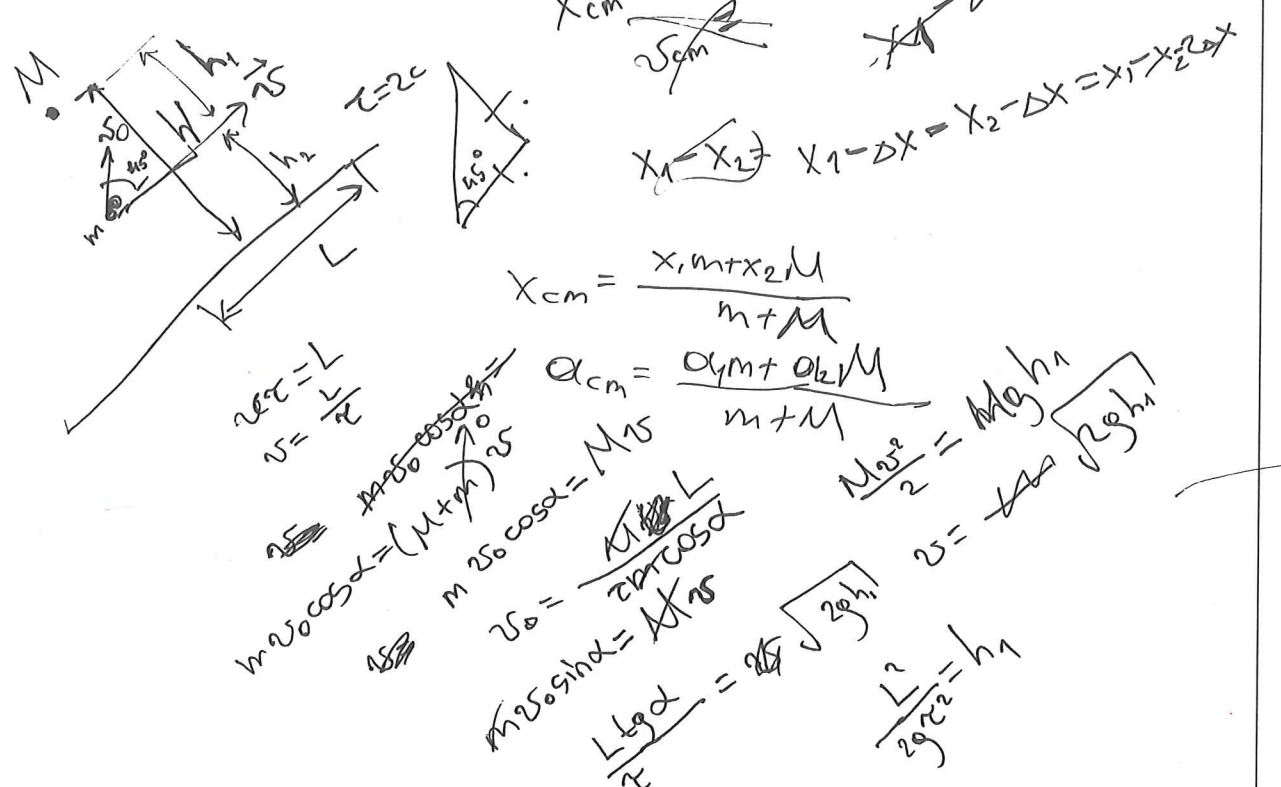 x cm
v cm
M
h₁
v⃗
τ=2c
v₀
H
45°
h₂
m
L
45°
x₁ - x₂ = x₁ - Δx = x₂ - Δx = x₁ - x₂ - 2Δx
x cm = (x₁m + x₂M) / (m + M)
a cm = (a₁m + a₂M) / (m + M)
vτ = L
v = L/τ
mv₀cosα =
mv₀cosα = (M + m)v
0
mv₀cosα = Mv
v₀ = ML / (τm cosα)
mv₀sinα = Mv
L tgα / τ = √(2gh₁)
Mv²/2 = Mgh₁
v = √(2gh₁)
L² / (2gτ²) = h₁